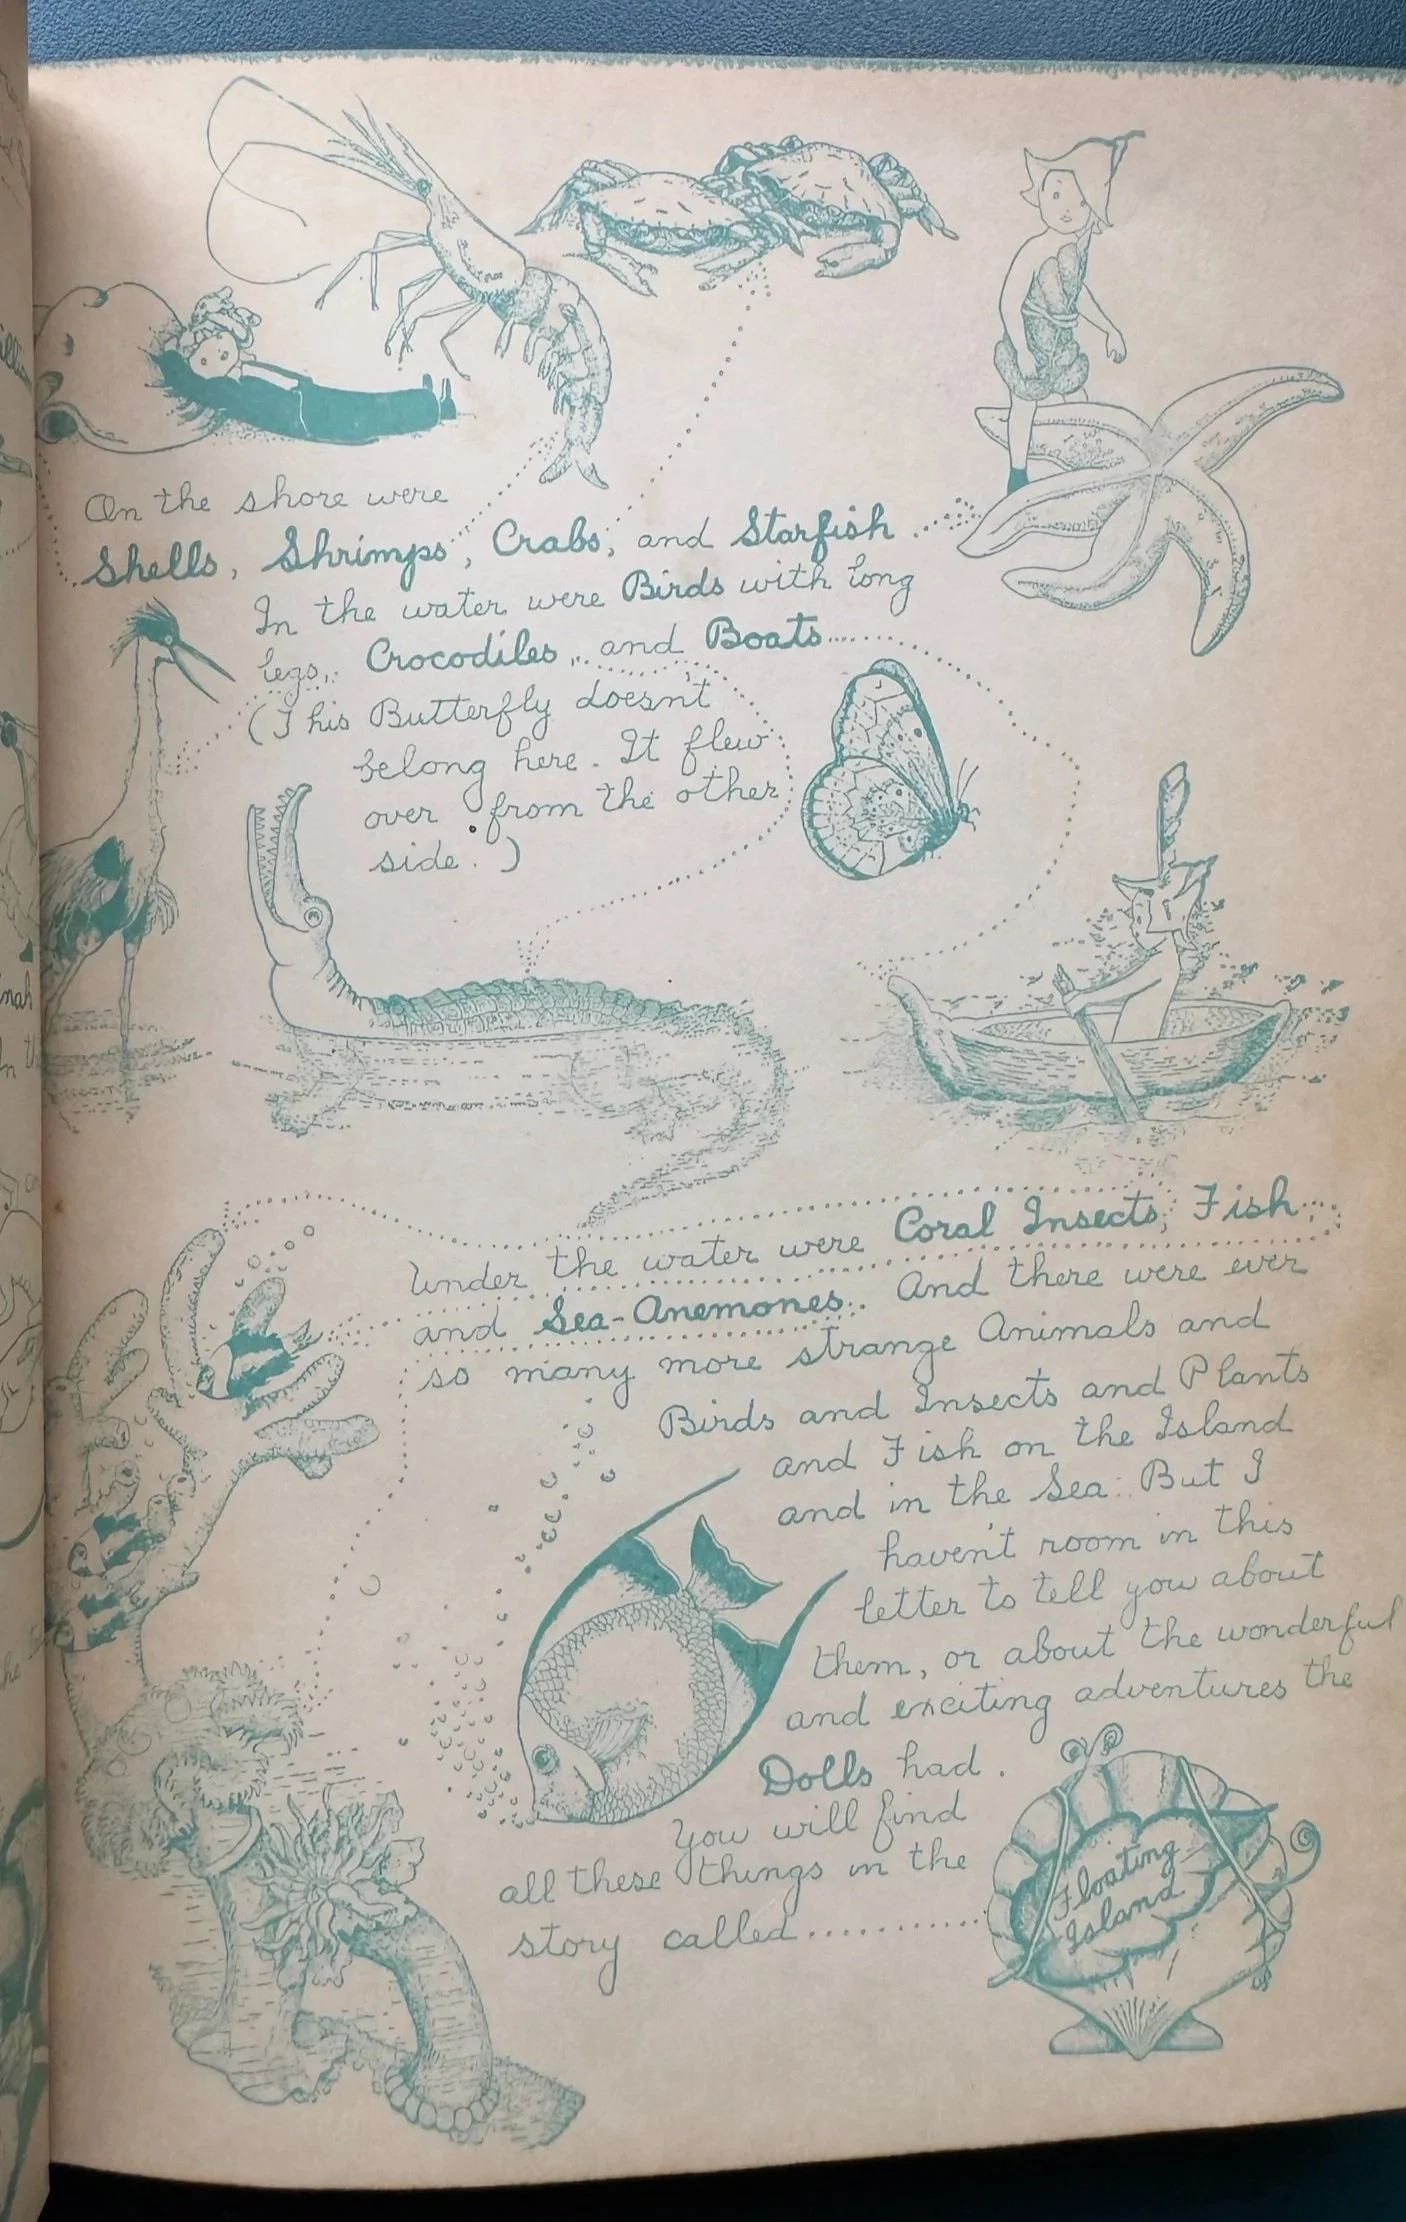 On the shore were
Shells, Shrimps, Crabs, and Starfish.
In the water were Birds with long
legs, Crocodiles, and Boats
(This Butterfly doesn't
belong here. It flew
over from the other
side.)
Under the water were Coral Insects, Fish,
and Sea-Anemones. And there were ever
so many more strange Animals and
Birds and Insects and Plants
and Fish on the Island
and in the Sea. But I
haven't room in this
letter to tell you about
them, or about the wonderful
and exciting adventures the
Dolls had.
You will find
all these things in the
story called
Floating
Island